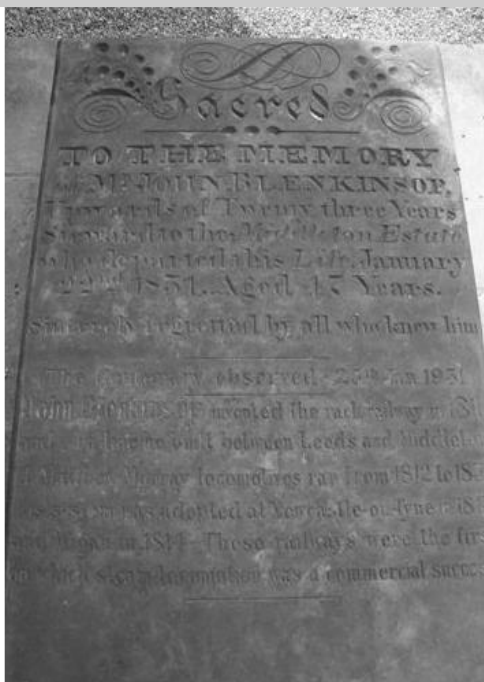 Sacred
TO THE MEMORY
of Mr JOHN BLENKINSOP,
Upwards of Twenty three Years
Steward to the Middleton Estate
who departed this Life, January
22nd 1831. Aged 47 Years.
Sincerely regretted by all who knew him
The Centenary observed 25th Jan 1931
John Blenkinsop invented the rack railway in 1811
built between Leeds and Middleton
Murray locomotives ran from 1812 to
was adopted at Newcastle-on-Tyne in
and Wigan in 1814. These railways were the
on which steam locomotion was a commercial